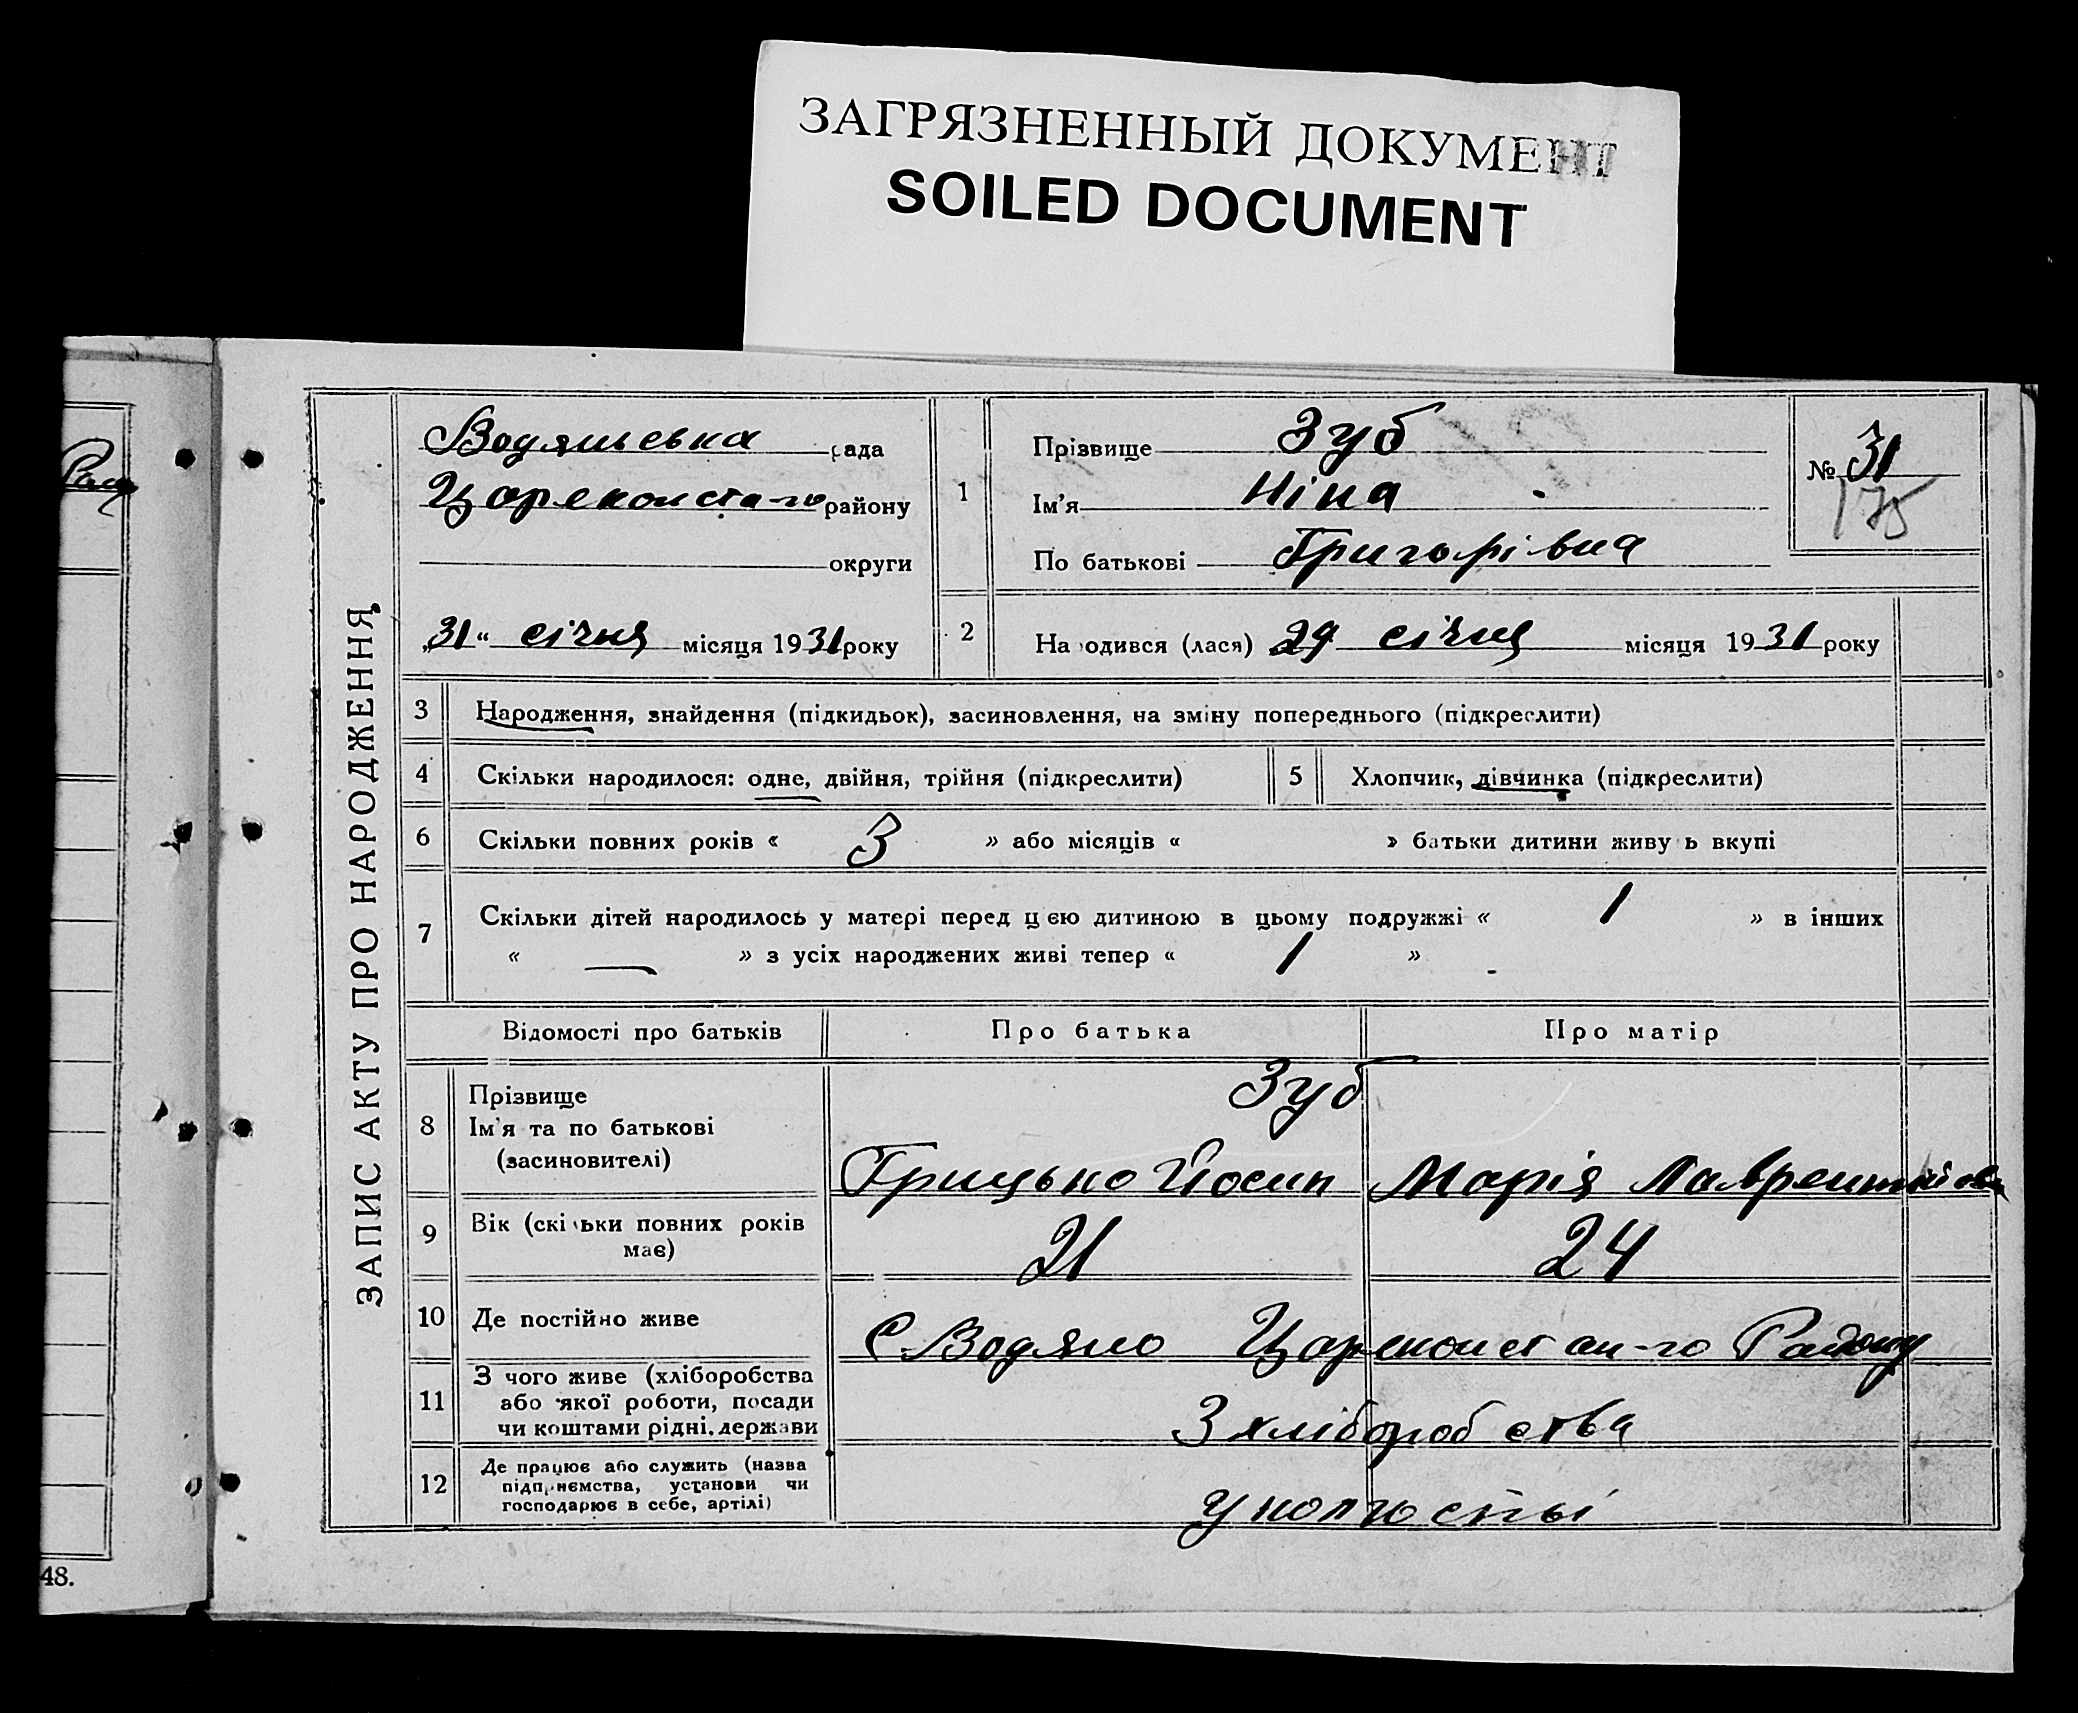 ЗАГРЯЗНЕННЫЙ ДОКУМЕНТ
SOILED DOCUMENT
ЗАПИС АКТУ ПРО НАРОДЖЕННЯ
Водянська рада
Цареконста-го району
округи
„31“ січня місяця 1931 року
1
Прізвище Зуб
Ім'я Ніна
По батькові Григорівна
№ 31
175
2 На одився (лася) 29 січня місяця 1931 року
3 Народження, знайдення (підкидьок), засиновлення, на зміну попереднього (підкреслити)
4 Скільки народилося: одне, двійня, трійня (підкреслити) 5 Хлопчик, дівчинка (підкреслити)
6 Скільки повних років « 3 » або місяців « » батьки дитини живу ь вкупі
7 Скільки дітей народилось у матері перед цією дитиною в цьому подружжі « 1 » в інших
« — » з усіх народжених живі тепер « 1 »
Відомості про батьків Про батька Про матір
8 Прізвище
Ім'я та по батькові
(засиновителі)
Зуб
Грицько Йосип Марія Лаврентьївна
9 Вік (скі ьки повних років
має)
21 24
10 Де постійно живе С Водяно Цареконстан-го Району
11 З чого живе (хліборобства
або якої роботи, посади
чи коштами рідні, держави
З хліборобства
12 Де працює або служить (назва
підприємства, установи чи
господарює в себе, артілі)
48.